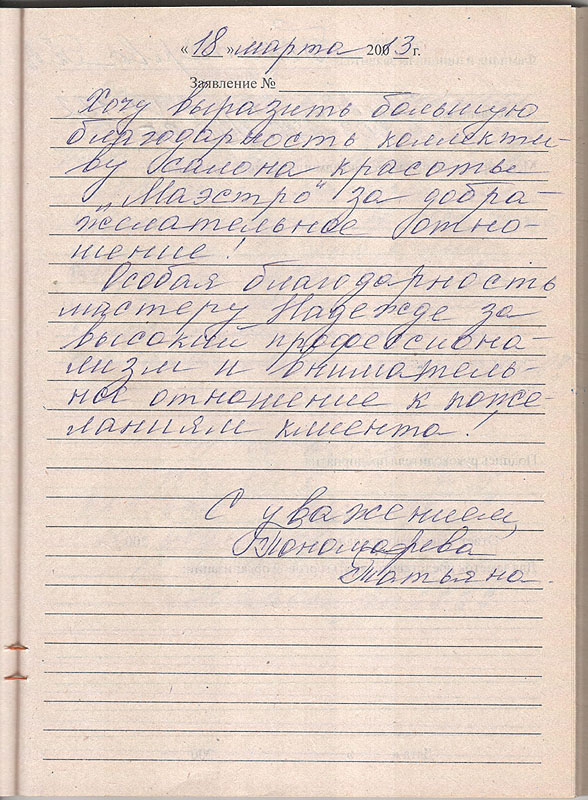 « 18 » марта 200 13 г.
Заявление №
Хочу выразить большую
благодарность коллекти-
ву салона красоты
"Маэстро" за добра-
желательное отно-
шение!
Особая благодарность
мастеру Надежде за
высокий профессиона-
лизм и вниматель-
ное отношение к поже-
ланиям клиента!
С уважением,
Пономарева
Татьяна.